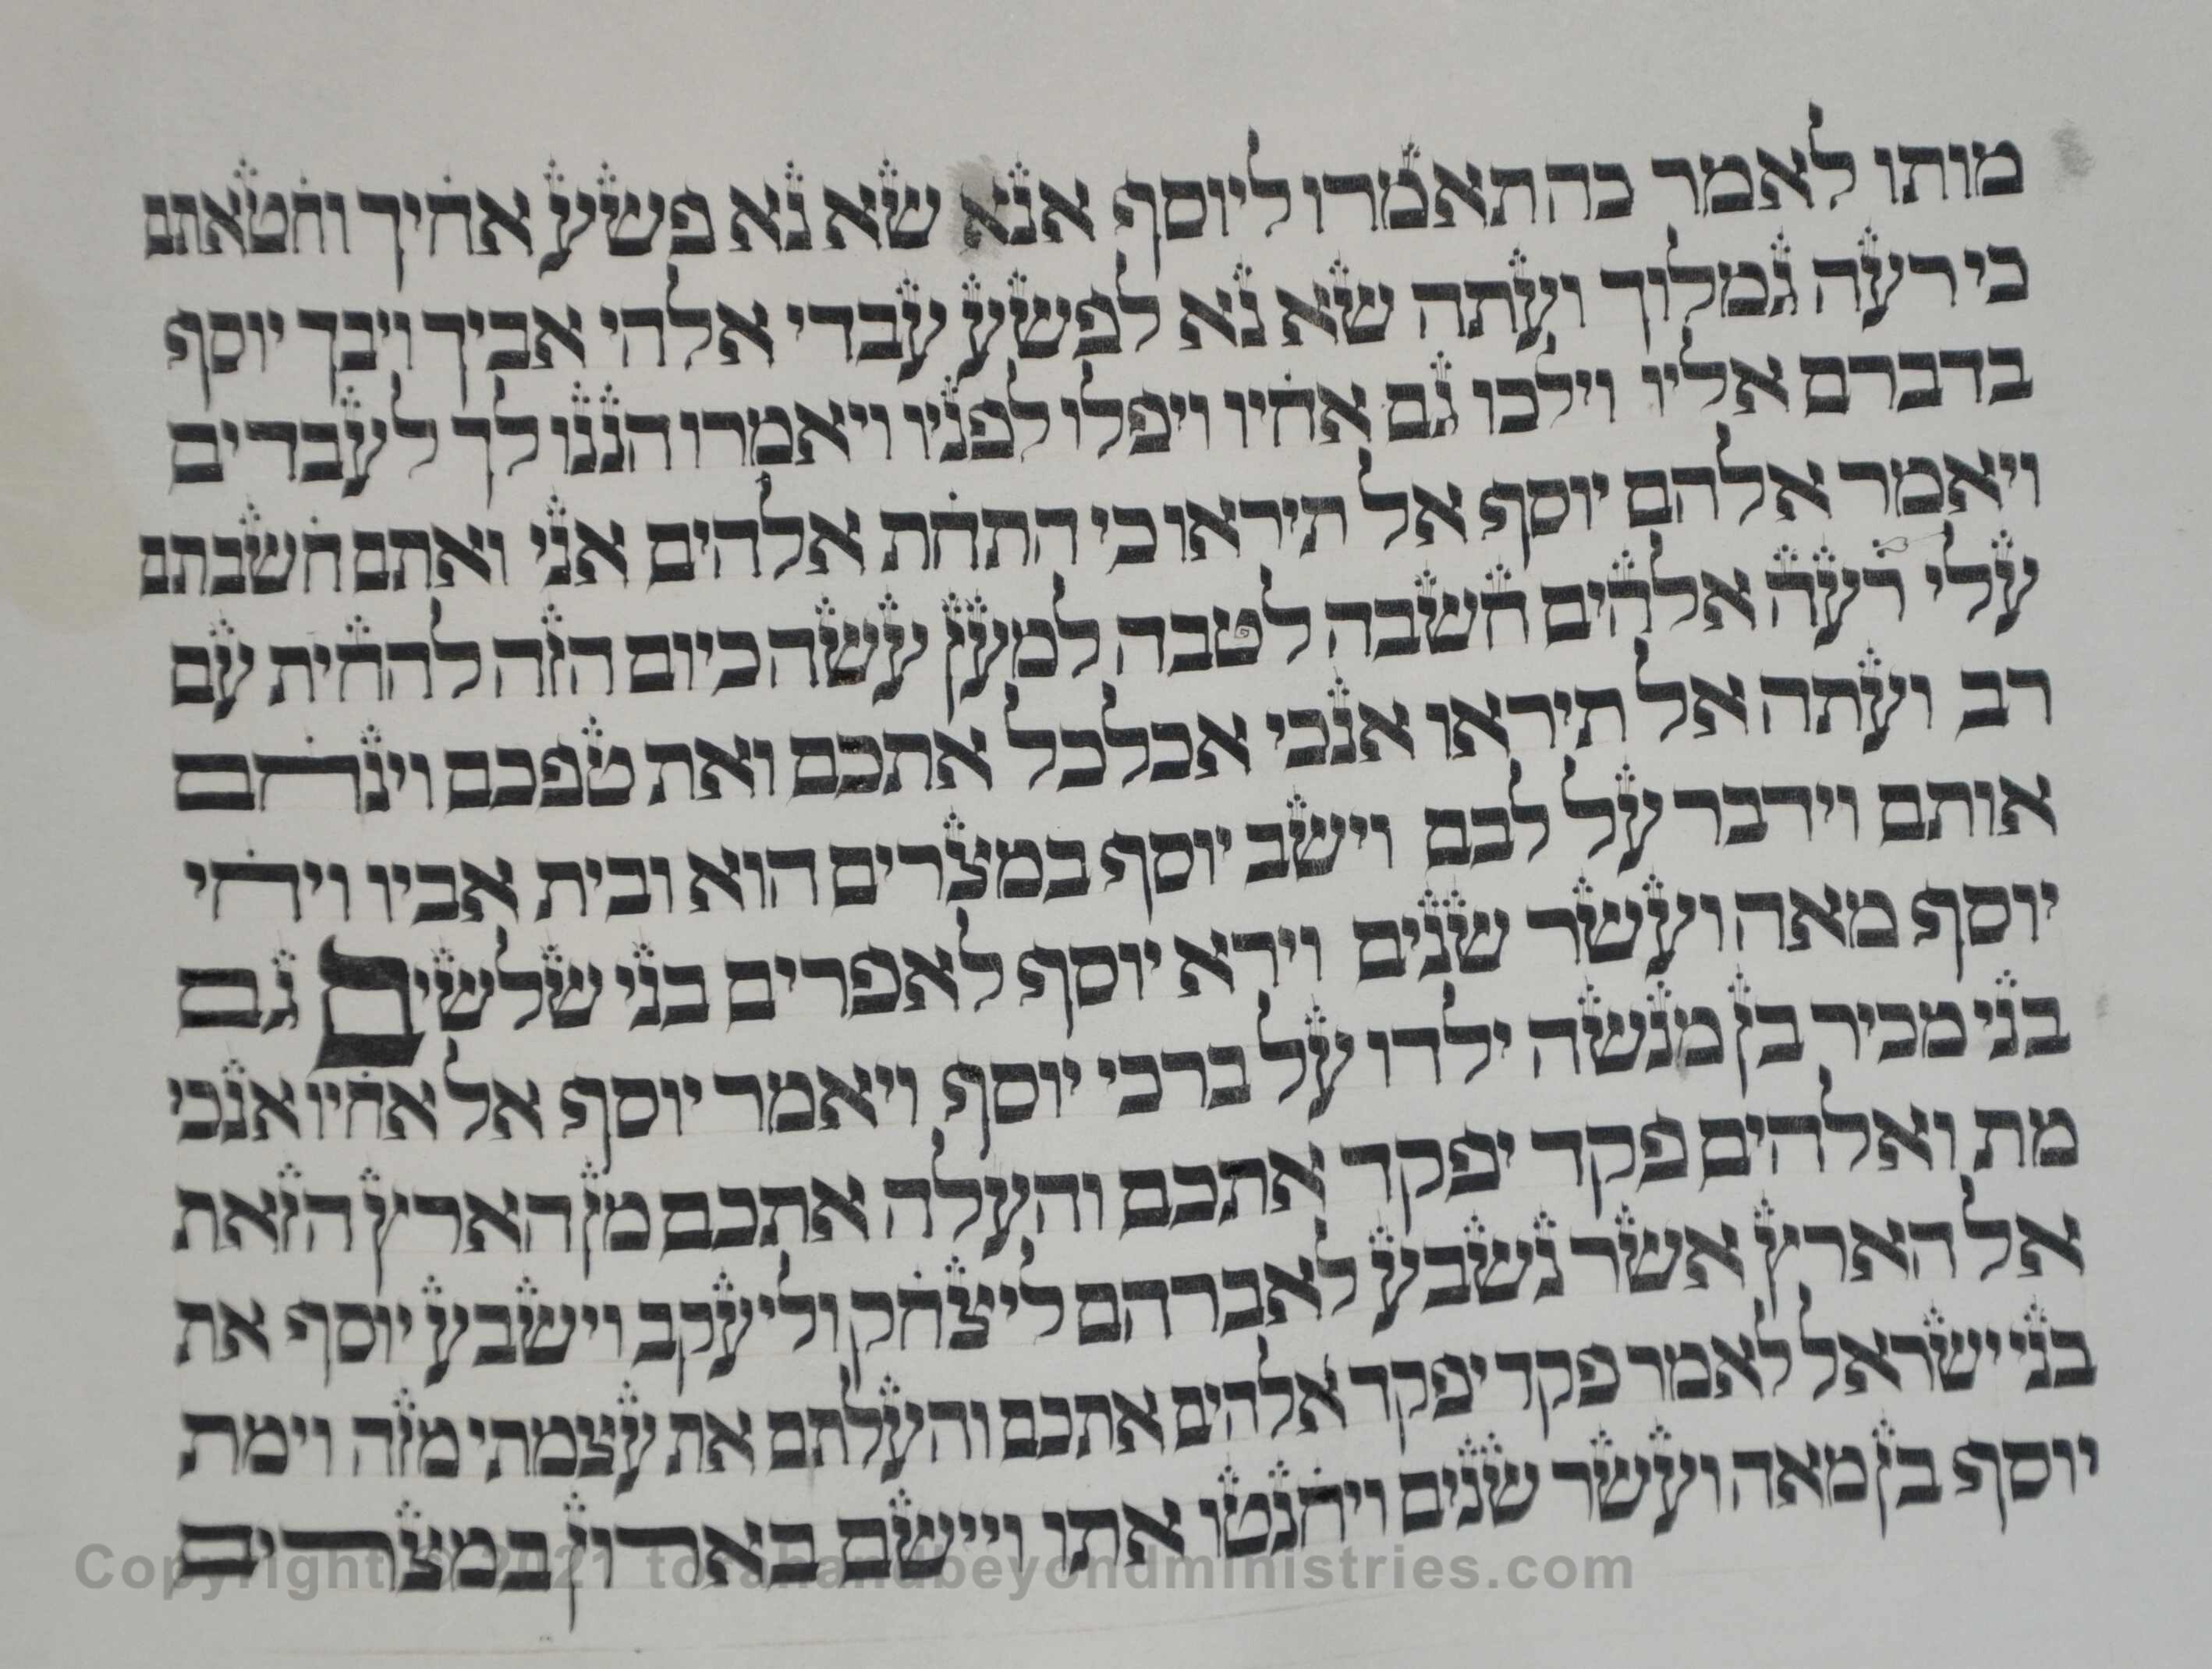 מותו לאמר כה תאמרו ליוסף אנא שא נא פשע אחיך וחטאתם
כי רעה גמלוך ועתה שא נא לפשע עבדי אלהי אביך ויבך יוסף
בדברם אליו וילכו גם אחיו ויפלו לפניו ויאמרו הננו לך לעבדים
ויאמר אלהם יוסף אל תיראו כי התחת אלהים אני ואתם חשבתם
עלי רעה אלהים חשבה לטבה למען עשה כיום הזה להחית עם
רב ועתה אל תיראו אנכי אכלכל אתכם ואת טפכם וינחם
אותם וידבר על לבם וישב יוסף במצרים הוא ובית אביו ויחי
יוסף מאה ועשר שנים וירא יוסף לאפרים בני שלשים גם
בני מכיר בן מנשה ילדו על ברכי יוסף ויאמר יוסף אל אחיו אנכי
מת ואלהים פקד יפקד אתכם והעלה אתכם מן הארץ הזאת
אל הארץ אשר נשבע לאברהם ליצחק וליעקב וישבע יוסף את
בני ישראל לאמר פקד יפקד אלהים אתכם והעלתם את עצמתי מזה וימת
יוסף בן מאה ועשר שנים ויחנטו אתו ויישם בארון במצרים
Copyright © 2021 torahandbeyondministries.com